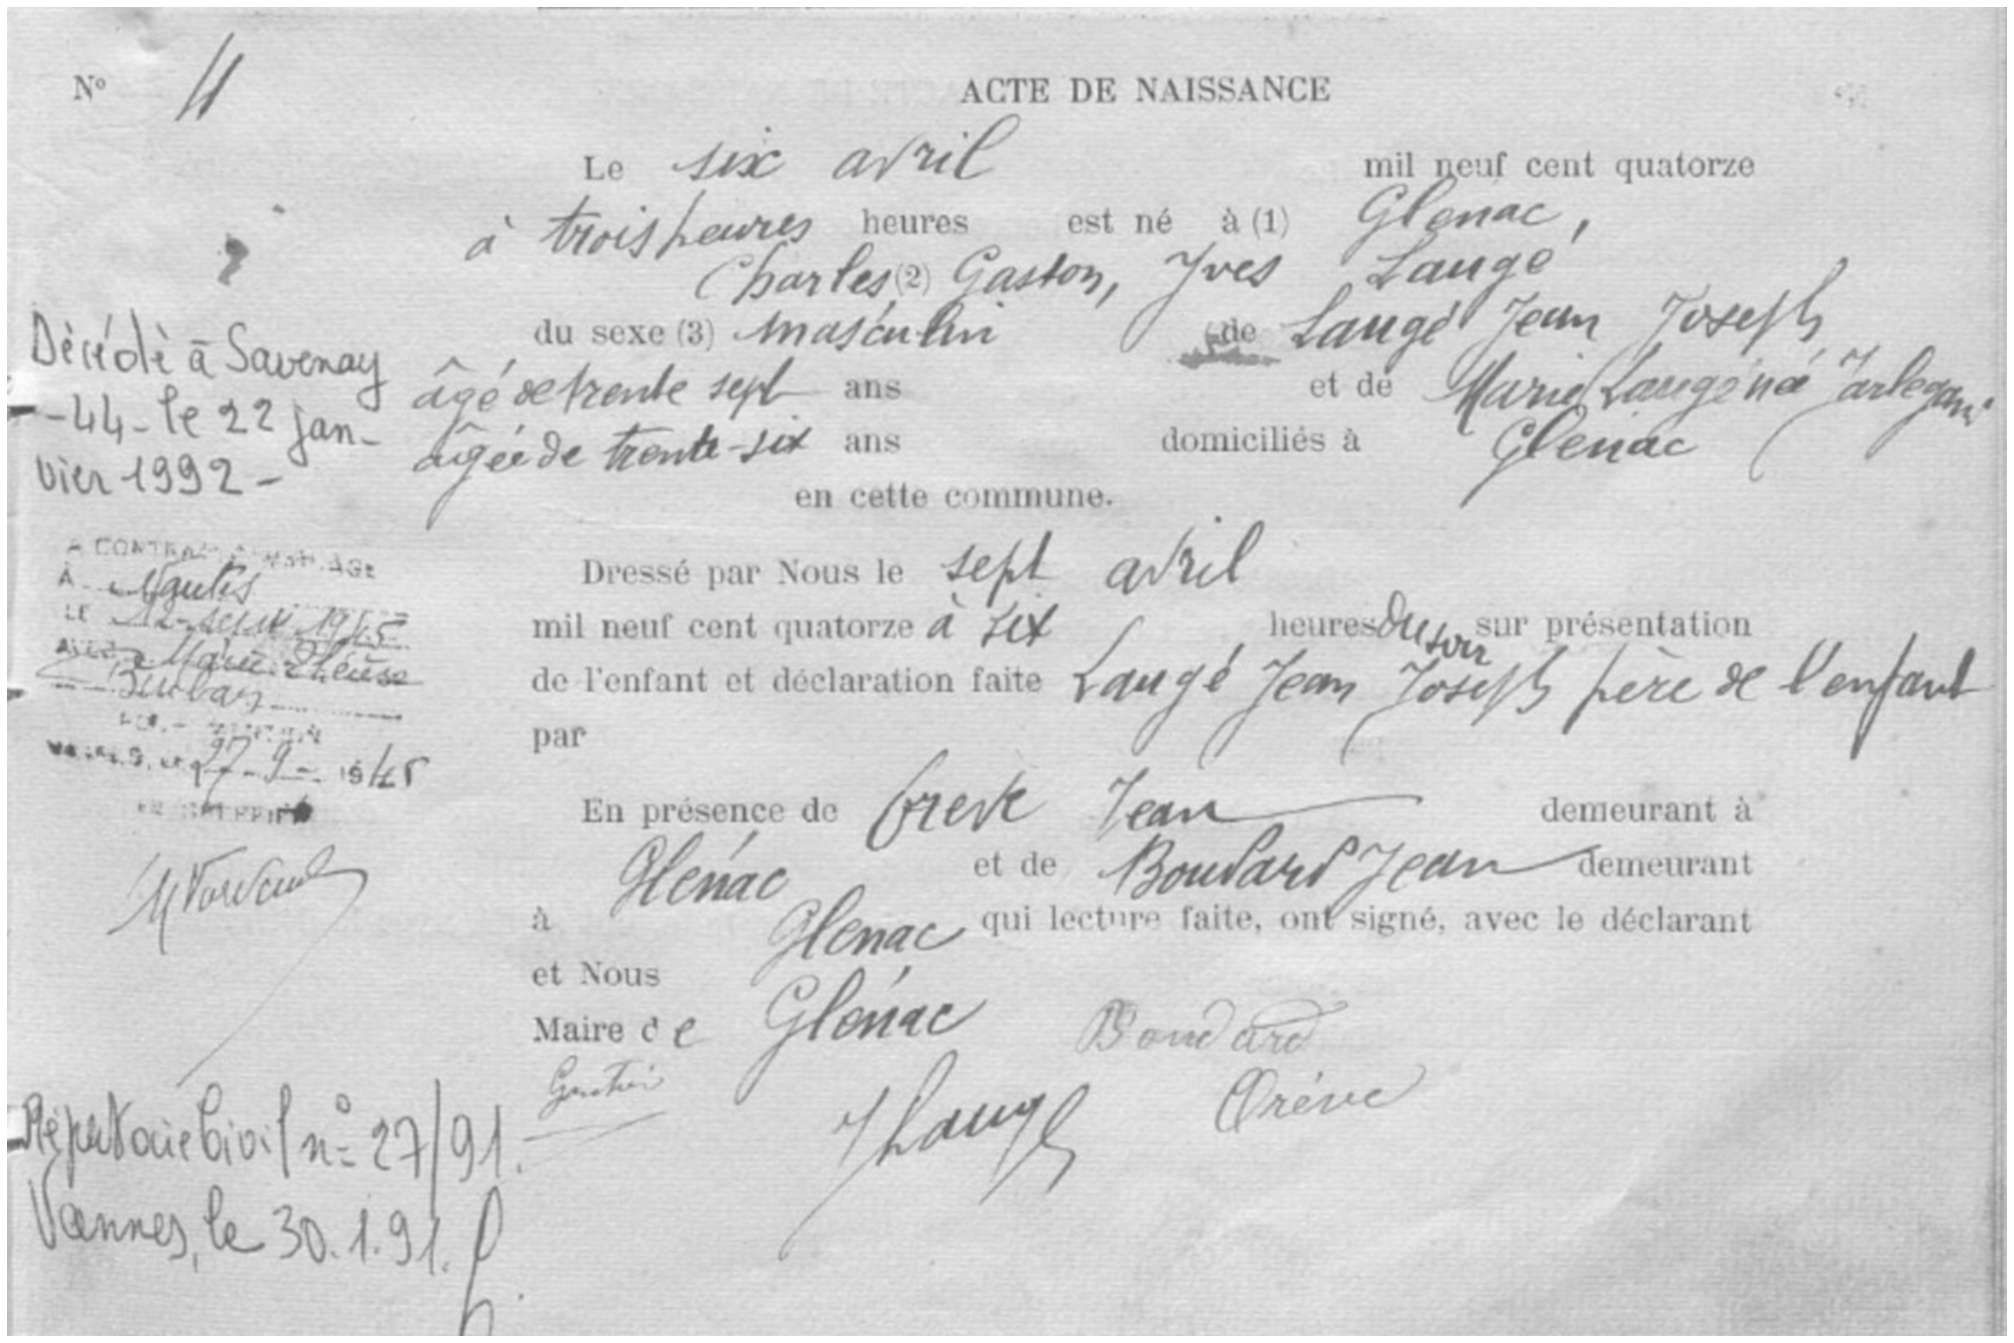 N° 11
ACTE DE NAISSANCE
Le six avril mil neuf cent quatorze
à trois heures heures est né à (1) Glénac,
Charles (2) Gaston, Yves Laugé
du sexe (3) masculin de Laugé Jean Joseph
âgé de trente sept ans et de Marie Laugé née
âgée de trente-six ans domiciliés à Glénac
en cette commune.
Dressé par Nous le sept avril
mil neuf cent quatorze à six heures du soir sur présentation
de l'enfant et déclaration faite Laugé Jean Joseph père de l'enfant
par
En présence de Jean demeurant à
Glénac et de Boudard Jean demeurant
à Glénac qui lecture faite, ont signé, avec le déclarant
et Nous
Maire de Glénac
Boudard
JLaugé
Décédé à Savenay
-44- le 22 jan-
vier 1992-
A CONTRACTÉ MARIAGE
À Nantes
LE 12 1945
AVEC Marie
27-9-1945
Répertoire Civil n° 27/91.
Vannes, le 30.1.91.